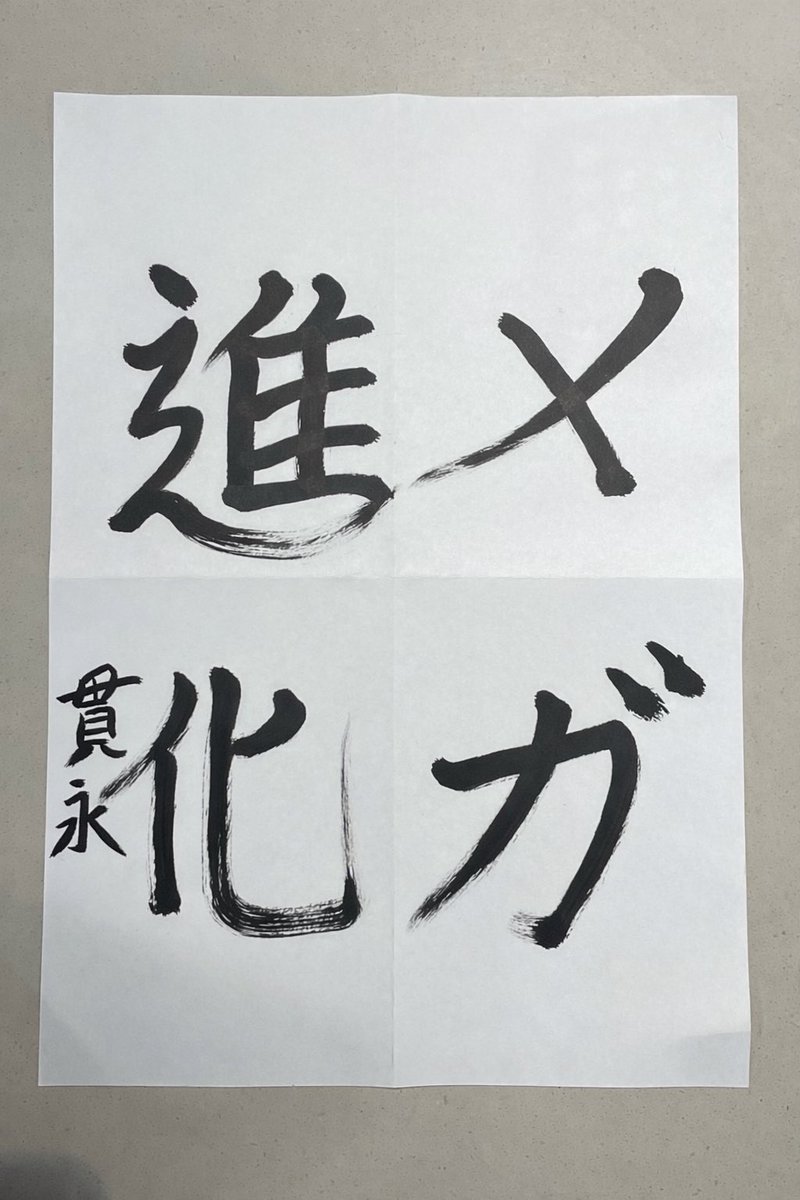 メガ
進化
貫永